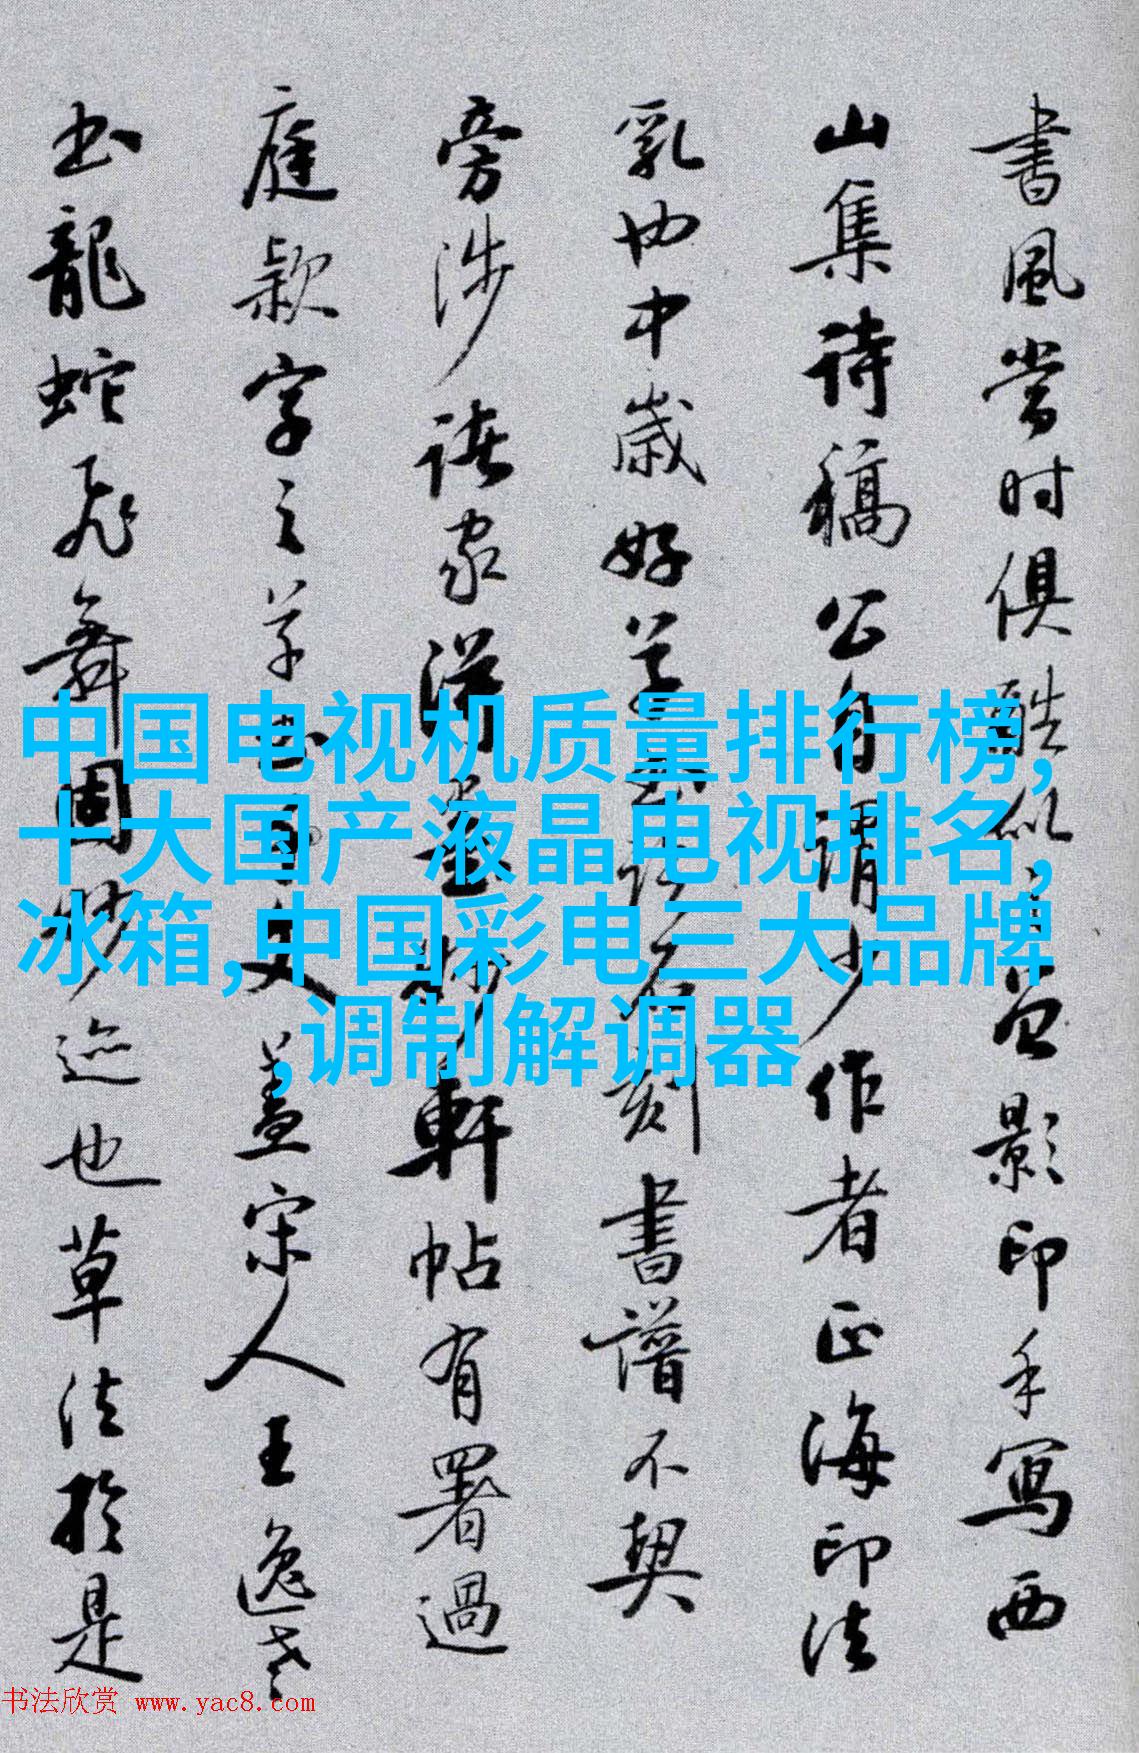 書風嘗时俱酷似
影印手寫西
山集诗稿公自謂少作者正海印法
乳中歲好
刻書譜不契
旁涉诸家
軒帖有署過
庭款字之草
蓋宋人王逸老
书龍蛇飛舞固妙迹也草法於是
中国电视机质量排行榜,
十大国产液晶电视排名,
冰箱,中国彩电三大品牌
,调制解调器
书法欣赏 www.yac8.com